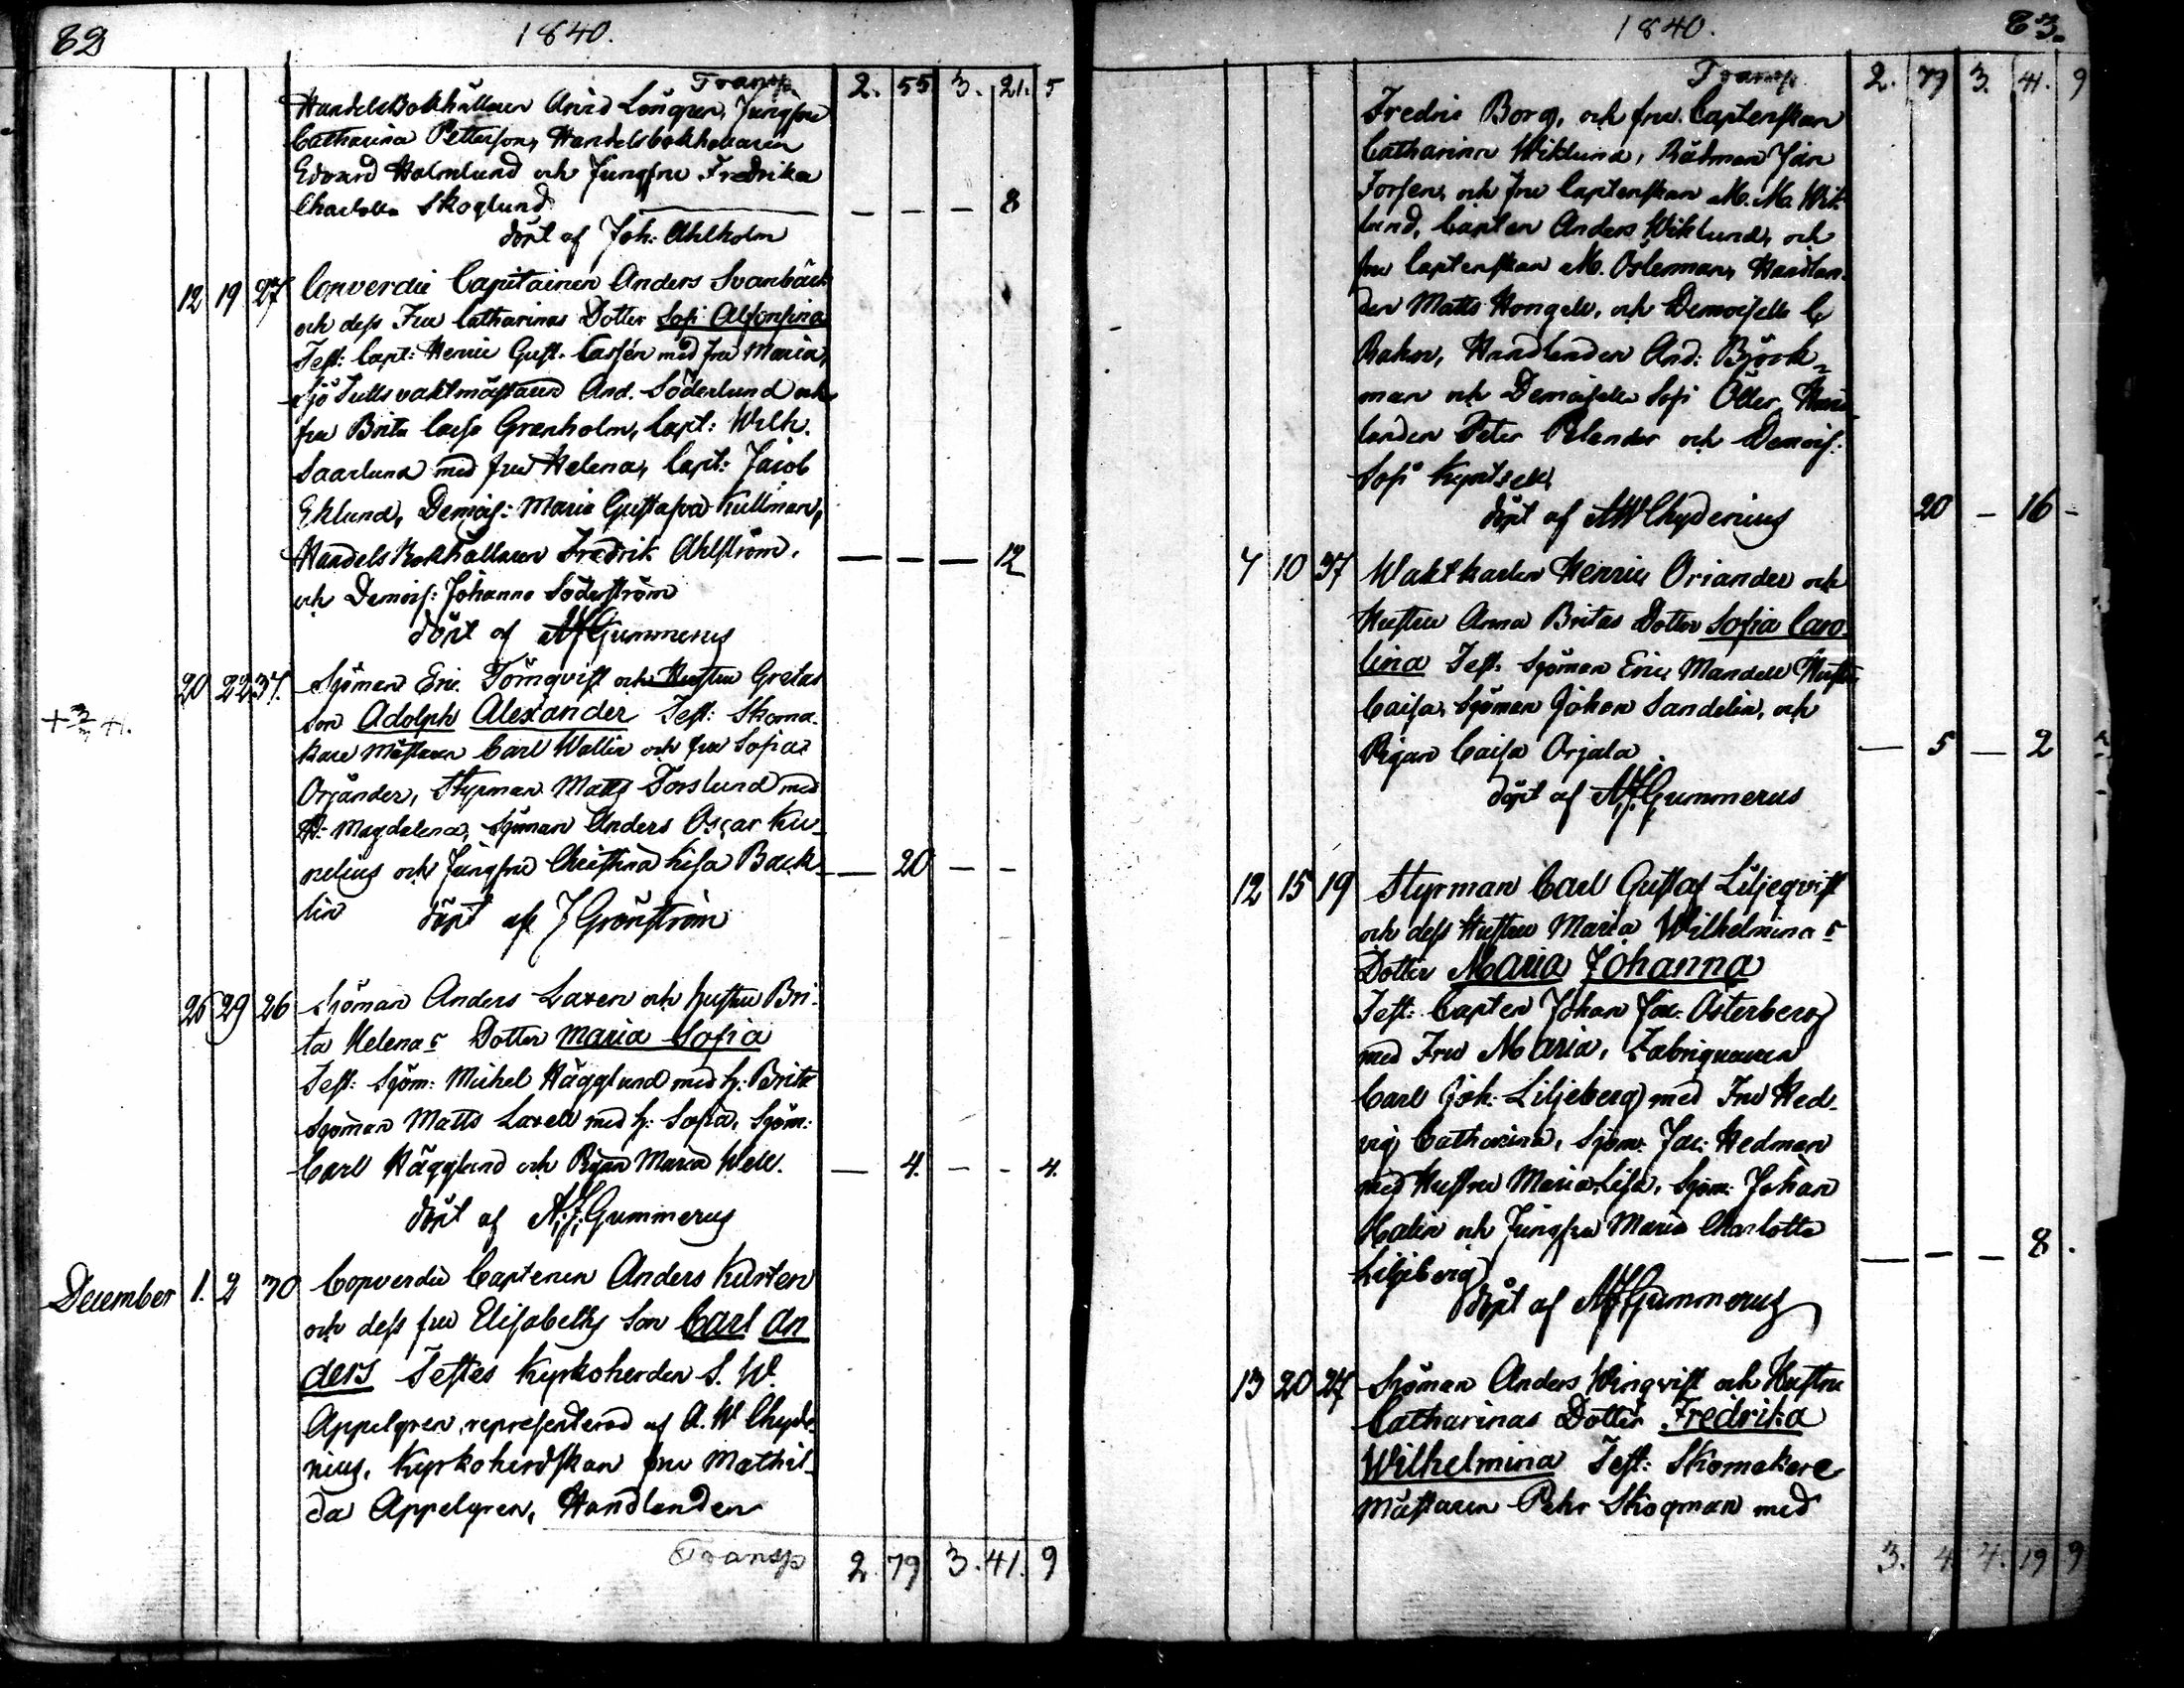 82 1840.
Transp 2. 55 3. 21. 5
Handels Bokhållaren Arvid Löngren, Jungfru
Catharina Petterson, Handelsbokhållaren
Edvard Holmlund och Jungfru Fredrika
Charlotta Skoglund — — — 8
döpt af Joh: Ahlholm
12 19 27 Copverdie Capitainen Anders Svanbäck
och dess Fru Catharinas Dotter Sofi Alfonsina
Test: Capt: Henric Gust. Cassén med fru Maria,
Sjö Tullsvaktmästaren And. Söderlund och
fru Brita Caisa Granholm, Capt: Wilh.
Saarlund med fru Helena, Capt: Jacob
Eklund, Demois: Maria Gustafva Kullman,
Handels Bokhållaren Fredrik Ahlström, — — — 12
och Demois: Johanna Söderström
döpt af AJGummerus
20 22 37. Sjöman Eric Törnqvist och Hustru Gretas
son Adolph Alexander Test: Skoma-
kare Mästaren Carl Wallin och fru Sofia
Orjander, Styrman Matts Forslund med
H: Magdalena, Sjöman Anders Oscar Ku-
nelius och Jungfru Christina Lisa Back- — 20 — -
lin döpt af J Grönström
26 29 26 Sjöman Anders Laxen och hustru Bri-
ta Helenas Dotter Maria Sofia
Test: Sjöm: Michel Hägglund med h: Brita
Sjöman Matts Laxell med h: Sofia, Sjöm:
Carl Hägglund och Pigan Maria Well. — 4. — - 4.
döpt af A.J.Gummerus
December 1. 2 30 Copverdie Captenen Anders Kursten
och dess fru Elisabeths Son Carl An
ders Testes Kyrkoherden S. W.
Appelgren, representerad af A. W Chyde-
nius, Kyrkoherdskan fru Mathil-
da Appelgren, Handlanden
Transp 2. 79 3. 41. 9
1840. 83.
Transp 2. 79 3. 41. 9
Fredric Borg, och fru Captenskan
Catharina Wiklund, Rådman Jan
Forsen, och fru Captenskan M. M. Wik
lund, Capten Anders Wiklund, och
fru Captenskan M. Österman, Handlan-
den Matts Hongell, och Demoiselle C
Rahm, Handlanden And: Björk-
man och Demoiselle Sofi Öller, Hand
landen Peter Pelander och Demois:
Sofi
döpt af AWChydenius 20 — 16 -
7 10 37 Waktkarlen Henric Oriander och
Hustru Anna Britas Dotter Sofia Caro
lina Test: Sjöman Eric Mandell Hustru
Caisa, Sjöman Johan Sandelin, och
Pigan Caisa Orjala — 5 — 2
döpt af AJGummerus
12 15 19 Styrman Carl Gustaf Liljeqvist
och dess Hustru Maria Wilhelminas
Dotter Maria Johanna
Test: Capten Johan Jac: Österberg
med Fru Maria, Fabriqueuren
Carl Joh: Liljeberg med Fru Hed-
vig Catharina, Sjöm: Jac: Hedman
med Hustru Maria Lisa, Sjöm: Johan
Malin och Jungfru Maria Charlotta
Liljeberg — — — 8.
döpt af AJGummerus
13 20 27 Sjöman Anders Winqvist och Hustru
Catharinas Dotter Fredrika
Wilhelmina Test: Skomakare
Mästaren Pehr Skogman med
3. 4. 4. 19 9